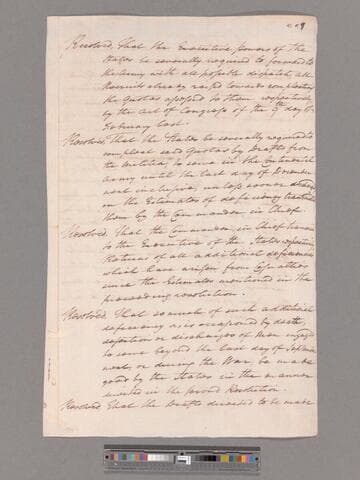 Resolved, That the Executive powers of the
States be severally required to forward to
the Army with all possible dispatch, all
Recruits already raised towards completing
the Quotas assigned to them respectively
by the Act of Congress of the 9th day of
February last.
Resolved, That the States be severally required to
compleat said Quotas by Drafts from
the Militia, to serve in the Continental
Army until the last day of December
next inclusive, unless sooner
in the Estimates of deficiency
them by the Commander in Chief
Resolved, That the Commander in Chief
to the Executive of the States
Returns of all additional deficiencies
which have arisen from
since the Estimates mentioned in the
preceeding resolution.
Resolved, That so much of such additional
deficiency as is occasioned by death,
desertion or discharges of Men engaged
to serve beyond the last day of
next, or during the War, be made
good by the States in the manner
directed in the second Resolution.
Resolved, That the Drafts directed to be made